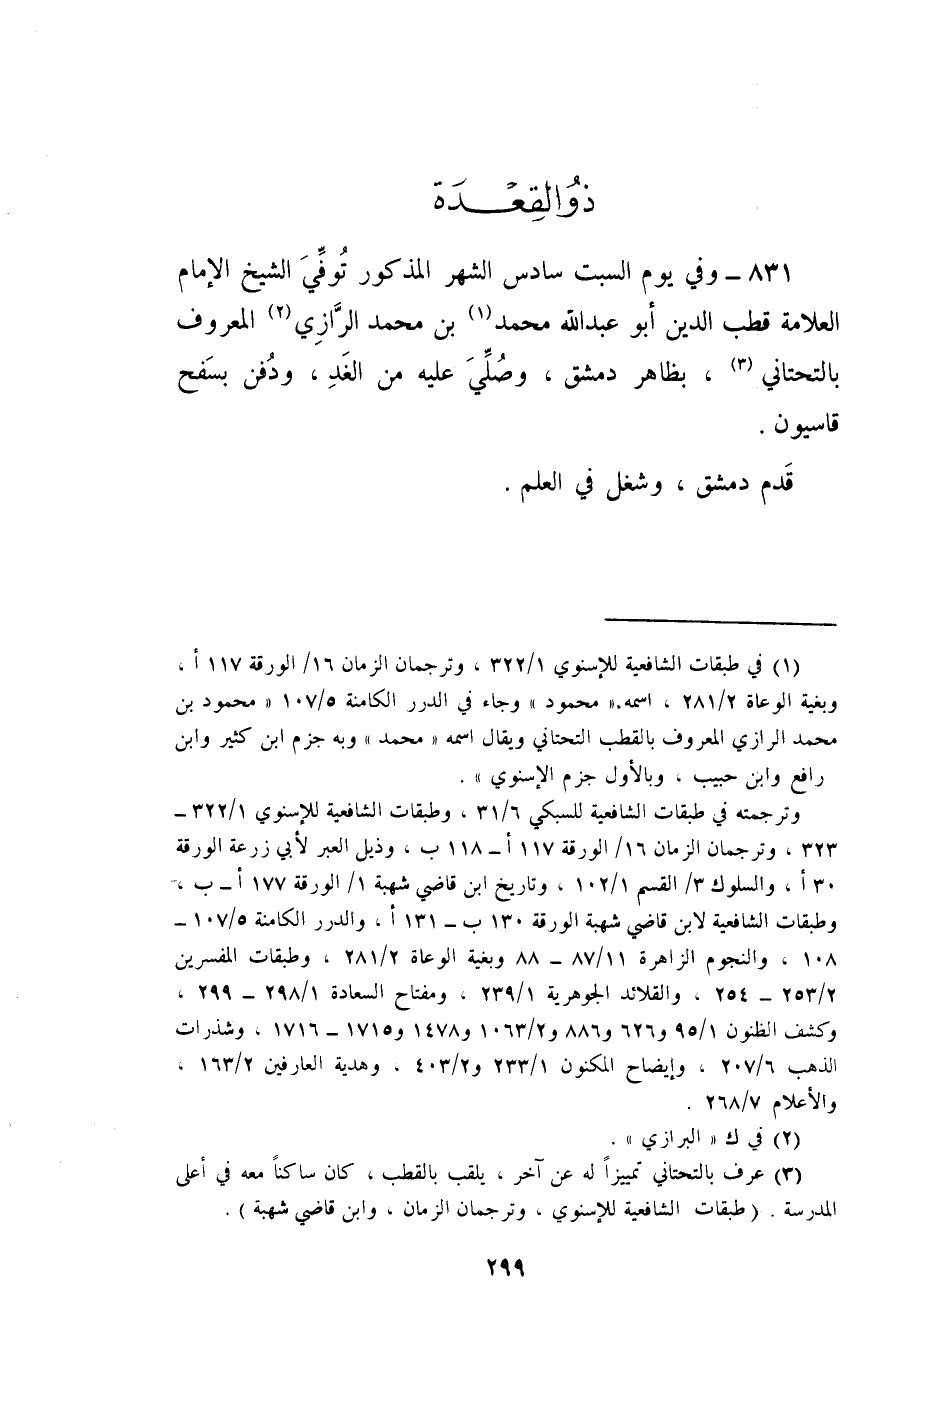 ذُو القِعْدَة
٨٣١ ـ وفي يوم السبت سادس الشهر المذكور تُوفِّيَ الشيخ الإمام
العلامة قطب الدين أبو عبدالله محمد(١) بن محمد الرَّازِي(٢) المعروف
بالتحتاني(٣) ، بظاهر دمشق ، وصُلِّيَ عليه من الغَدِ ، ودُفن بسَفح
قاسيون .
قَدم دمشق ، وشغل في العلم .
(١) في طبقات الشافعية للإسنوي ٣٢٢/١ ، وترجمان الزمان ١٦/ الورقة ١١٧ أ ،
وبغية الوعاة ٢٨١/٢ ، اسمه « محمود » وجاء في الدرر الكامنة ١٠٧/٥ « محمود بن
محمد الرازي المعروف بالقطب التحتاني ويقال اسمه « محمد » وبه جزم ابن كثير وابن
رافع وابن حبيب ، وبالأول جزم الإسنوي » .
وترجمته في طبقات الشافعية للسبكي ٣١/٦ ، وطبقات الشافعية للإسنوي ٣٢٢/١ ـ
٣٢٣ ، وترجمان الزمان ١٦/ الورقة ١١٧ أ ـ ١١٨ ب ، وذيل العبر لأبي زرعة الورقة
٣٠ أ ، والسلوك ٣/ القسم ١٠٢/١ ، وتاريخ ابن قاضي شهبة ١/ الورقة ١٧٧ أ ـ ب ،
وطبقات الشافعية لابن قاضي شهبة الورقة ١٣٠ ب ـ ١٣١ أ ، والدرر الكامنة ١٠٧/٥ ـ
١٠٨ ، والنجوم الزاهرة ٨٧/١١ ـ ٨٨ وبغية الوعاة ٢٨١/٢ ، وطبقات المفسرين
٢٥٣/٢ ـ ٢٥٤ ، والقلائد الجوهرية ٢٣٩/١ ، ومفتاح السعادة ٢٩٨/١ ـ ٢٩٩ ،
وكشف الظنون ٩٥/١ و٦٢٦ و٨٨٦ و١٠٦٣/٢ و١٤٧٨ و١٧١٥ ـ ١٧١٦ ، وشذرات
الذهب ٢٠٧/٦ ، وإيضاح المكنون ٢٣٣/١ و٤٠٣/٢ ، وهدية العارفين ١٦٣/٢ ،
والأعلام ٢٦٨/٧ .
(٢) في ك « البرازي » .
(٣) عرف بالتحتاني تمييزاً له عن آخر ، يلقب بالقطب ، كان ساكناً معه في أعلى
المدرسة . ( طبقات الشافعية للإسنوي ، وترجمان الزمان ، وابن قاضي شهبة ) .
٢٩٩